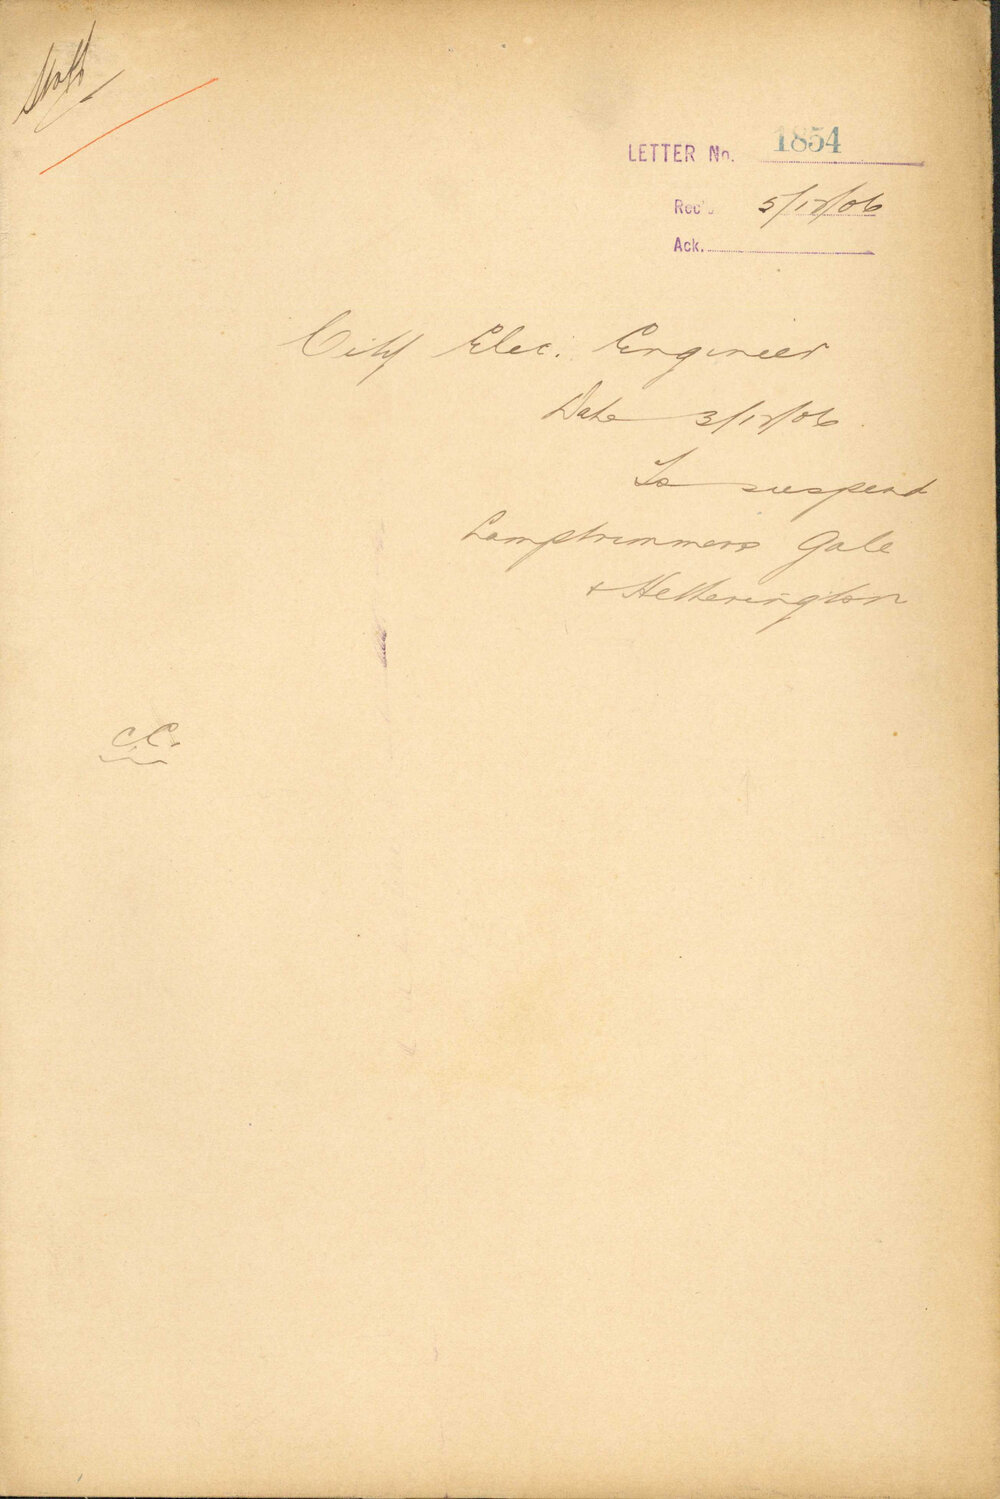 Staff
LETTER No. 1854
Rec'd 5/12/06
Ack.
City Elec. Engineer
Date 3/12/06.
To suspend
Lamptrimmers Gale
+ Hetherington
C.C.